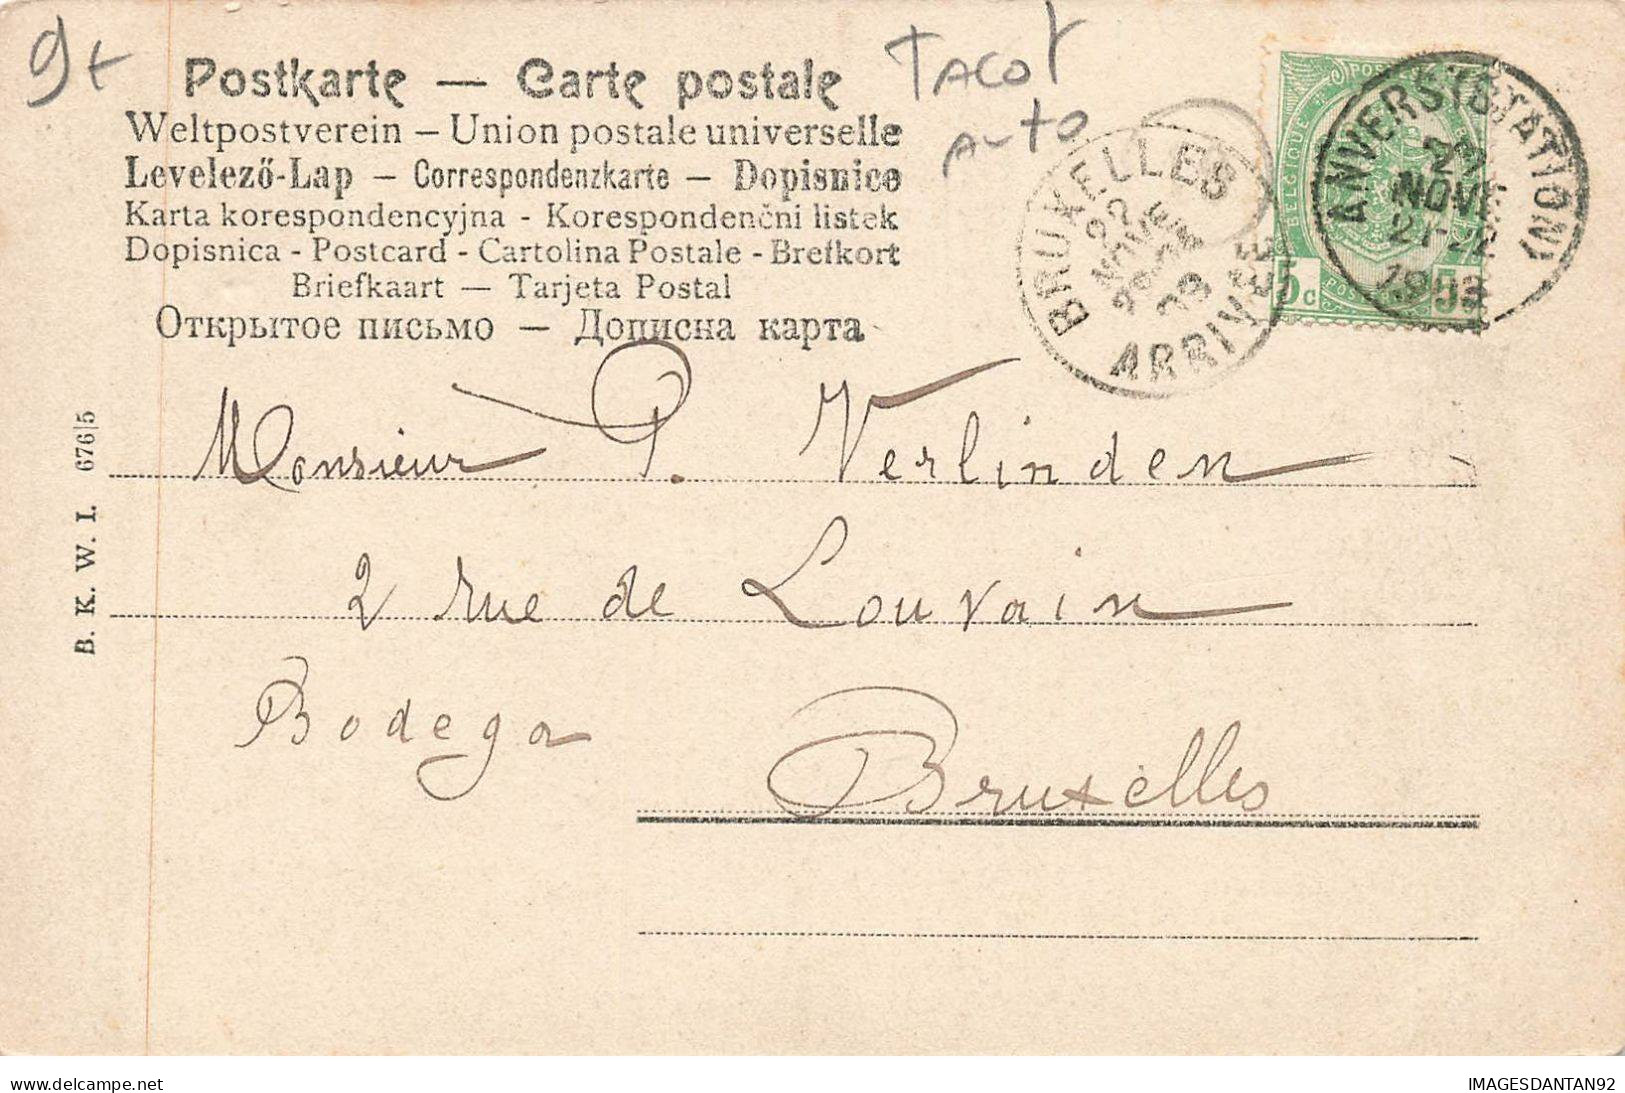 9t
TACOT
AUTO
Postkarte — Carte postale
Weltpostverein – Union postale universelle
Levelező-Lap – Correspondenzkarte – Dopisnice
Karta korespondencyjna - Korespondenční listek
Dopisnica - Postcard - Cartolina Postale - Brefkort
Briefkaart — Tarjeta Postal
Открытое письмо — Дописна карта
BRUXELLES
22
NOVE
03
ARRIVÉE
BELGIQUE
POSTES
5c
ANVERS (STATION)
NOVE
1903
Monsieur P. Verlinden
2 rue de Louvain
Bodega
Bruxelles
B. K. W. I. 676|5
www.delcampe.net
IMAGESDANTAN92